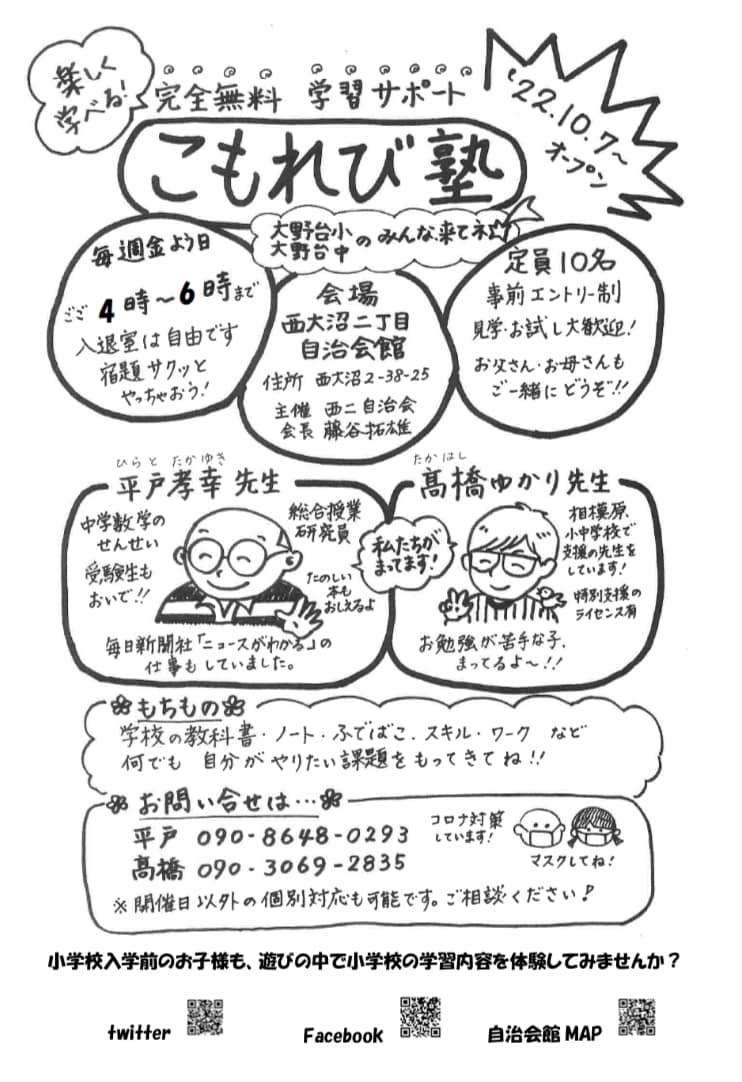 楽しく
学べる!
完全無料 学習サポート
'22.10.7~
オープン
こもれび塾
大野台小
大野台中
のみんな、来てネ♪
毎週金よう日
ごご 4時~6時まで
入退室は自由です
宿題サクッと
やっちゃおう!
会場
西大沼二丁目
自治会館
住所 西大沼2-38-25
主催 西二自治会
会長 藤谷拓雄
定員10名
事前エントリー制
見学・お試し大歓迎!
お父さん・お母さんも
ご一緒にどうぞ!!
ひらと たかゆき
平戸孝幸先生
中学数学の
せんせい
受験生も
おいで!!
総合授業
研究員
たのしい
本も
おしえるよ
毎日新聞社「ニュースがわかる」の
仕事もしていました。
私たちが
まってます!
たかはし
髙橋ゆかり先生
相模原、
小中学校で
支援の先生を
しています!
特別支援の
ライセンス有
お勉強が苦手な子、
まってるよ~!!
もちもの
学校の教科書・ノート・ふでばこ・スキル・ワーク など
何でも 自分がやりたい課題をもってきてね!!
お問い合せは…
平戸 090-8648-0293
髙橋 090-3069-2835
コロナ対策
しています!
マスクしてね!
※開催日以外の個別対応も可能です。ご相談ください!
小学校入学前のお子様も、遊びの中で小学校の学習内容を体験してみませんか?
twitter
Facebook
自治会館 MAP